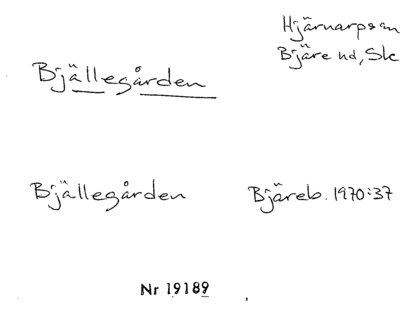 Hjärnarps sn
Bjäre hd, Sk
Bjällegården
Bjällegården Bjäreb. 1970:37
Nr 19189